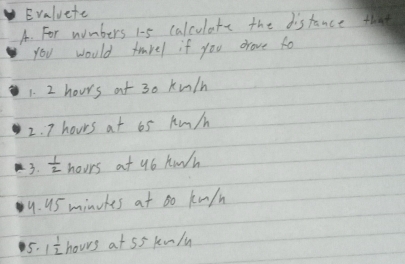 Evaluete
A. For numbers 1-5 calculate the distance that
You would travel if you drove fo
1. 2 hours at 30 km/h
2. 7 hours at 65 km/h
3. 1/2 hours at 46 km/h
4. 45 minutes at 80 km/h
5. 1 1/2 hours at 55 km/h